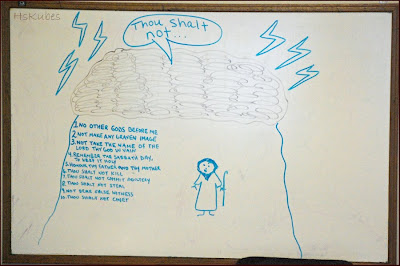 HSKubes
Thou Shalt
not...
1. NO OTHER GODS BEFORE ME
2. NOT MAKE ANY GRAVEN IMAGE
3. NOT TAKE THE NAME OF THE
LORD THY GOD IN VAIN
4. REMEMBER THE SABBATH DAY,
TO KEEP IT HOLY
5. HONOUR THY FATHER AND THY MOTHER
6. THOU SHALT NOT KILL
7. THOU SHALT NOT COMMIT ADULTERY
8. THOU SHALT NOT STEAL
9. NOT BEAR FALSE WITNESS
10. THOU SHALT NOT COVET